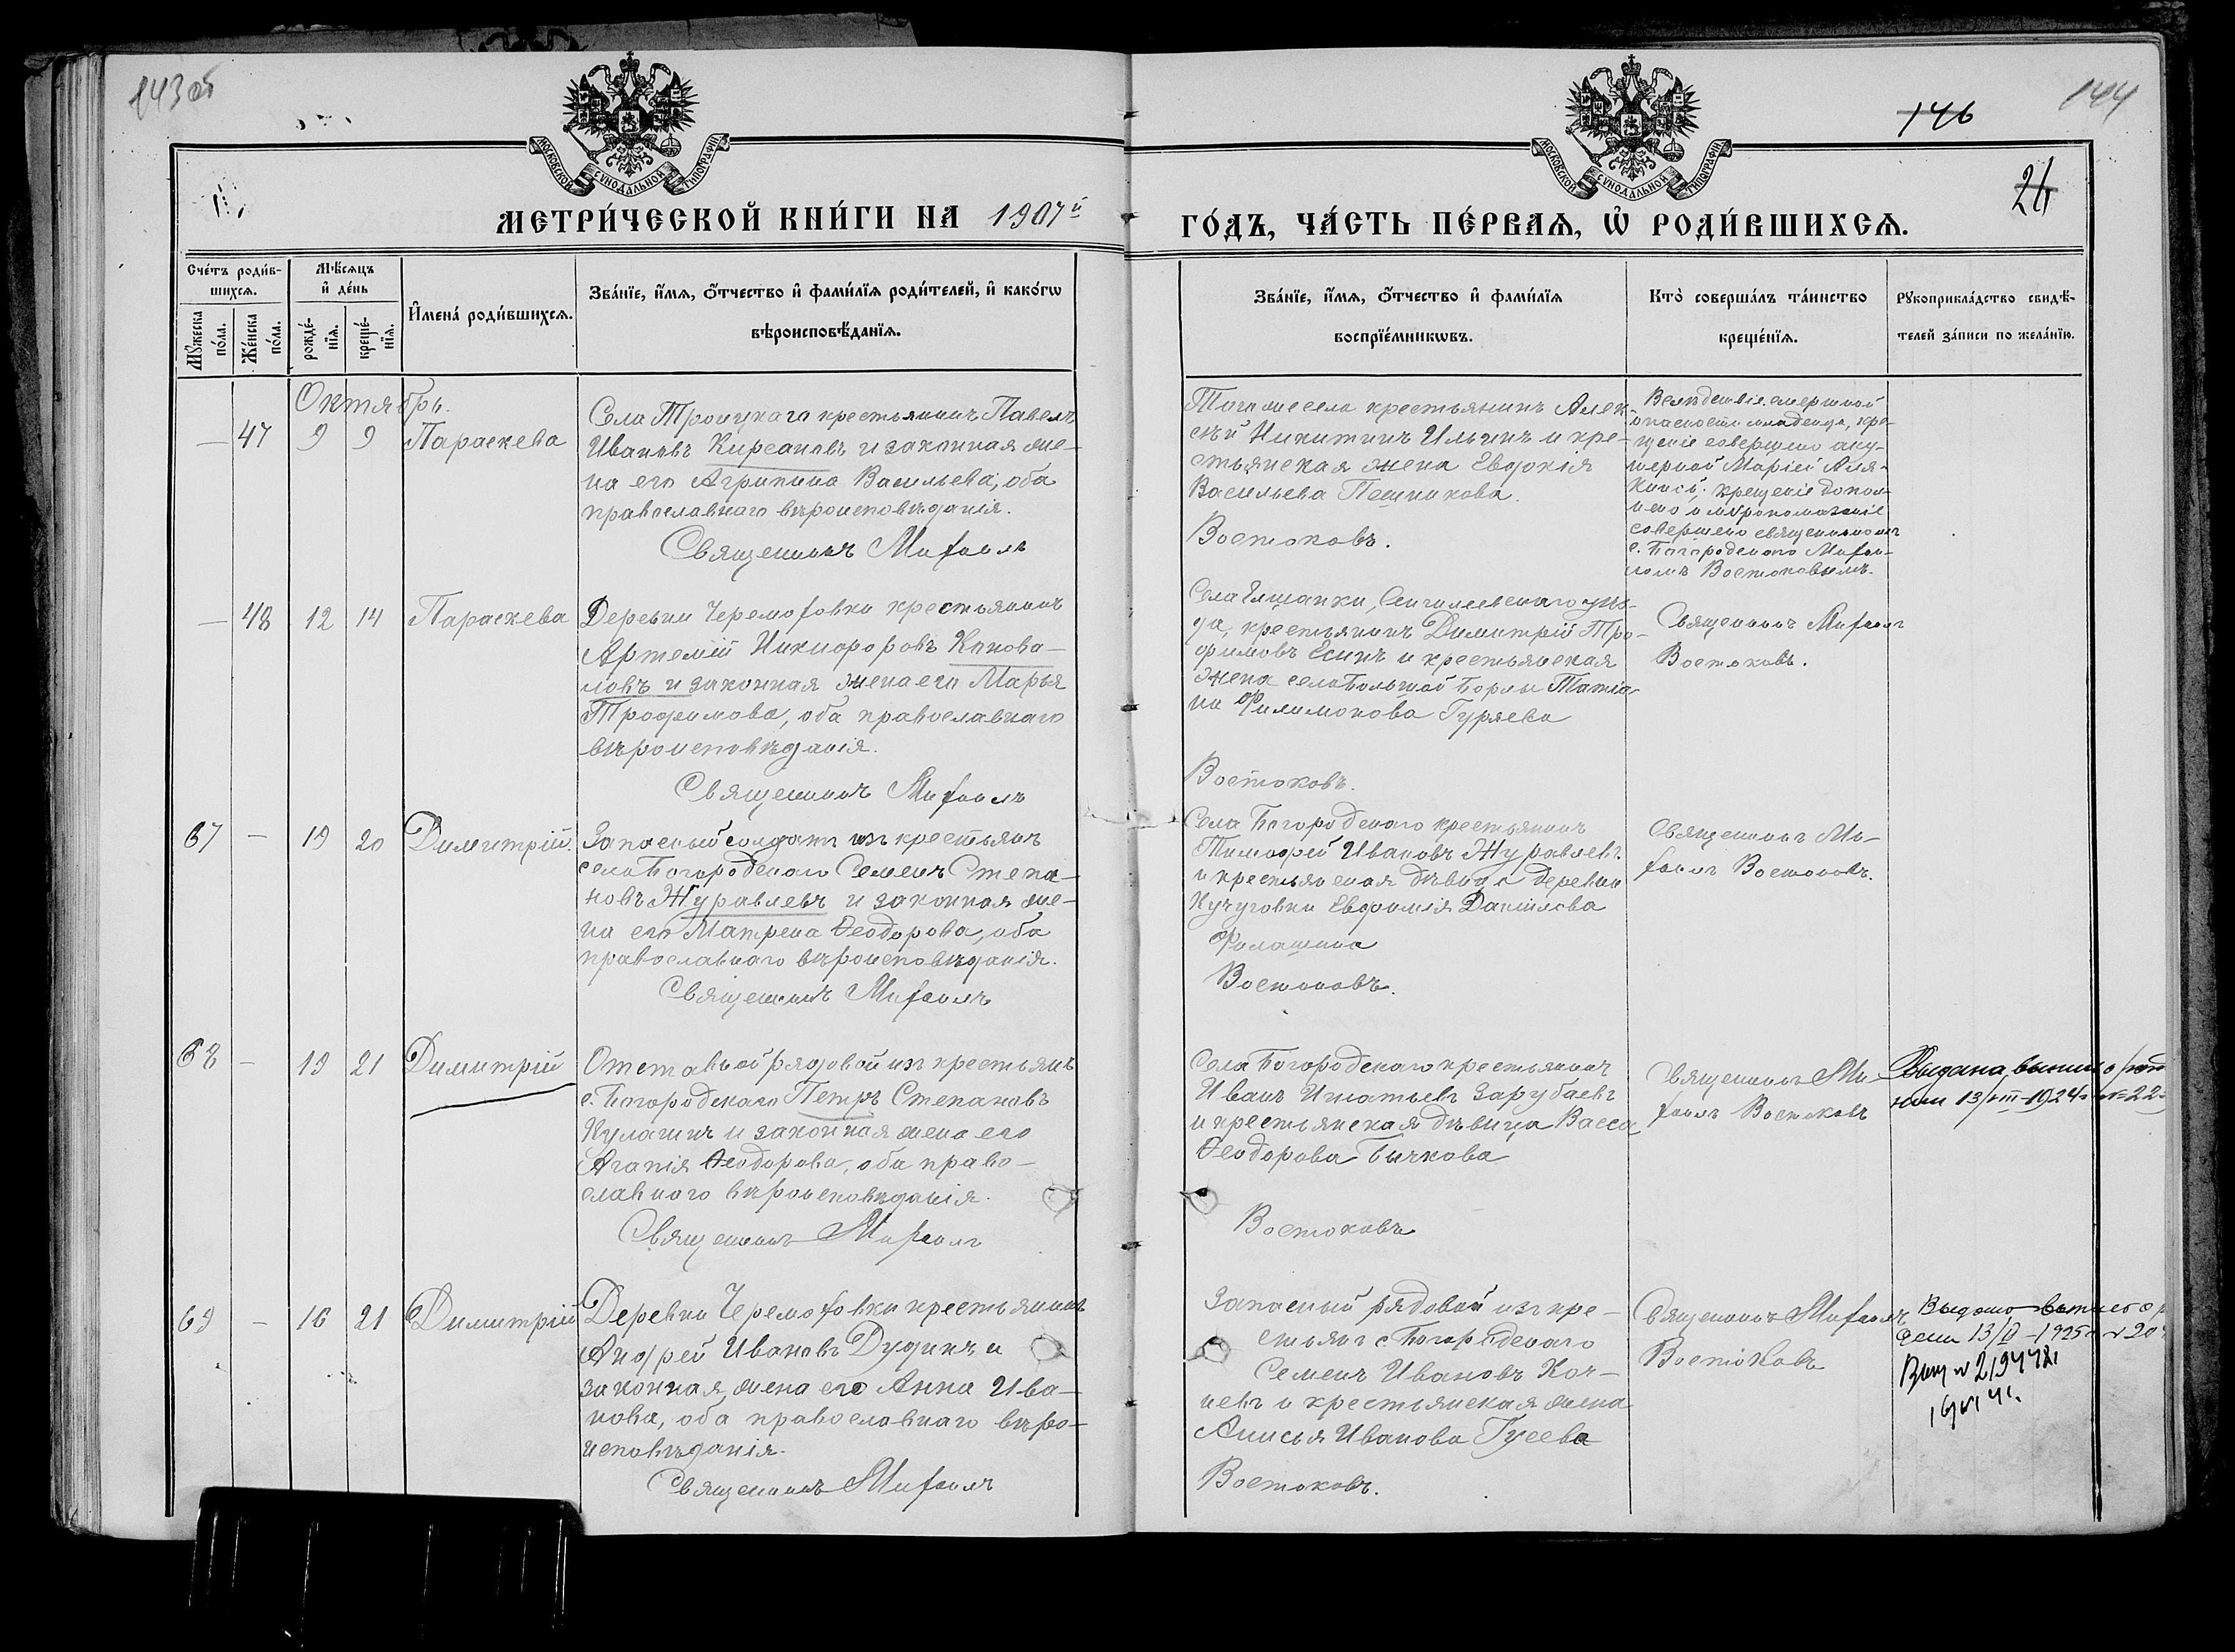 143 об
144
146
26
МОСКОВСКОЙ СУНОДАЛЬНОЙ ТИПОГРАФІИ
МОСКОВСКОЙ СУНОДАЛЬНОЙ ТИПОГРАФІИ
МЕТРИ́ЧЕСКОЙ КНИ́ГИ НА 1907й
ГО́ДЪ, ЧА́СТЬ ПЕ́РВАѦ, Ѽ РОДИ́ВШИХСѦ.
Сче́тъ роди́в-
шихсѧ.
Мꙋ́жеска по́ла.
Же́нска по́ла.
Мѣ́сѧцъ
и҆ де́нь
рожде́-
нїѧ.
креще́-
нїѧ.
И҆мена́ роди́вшихсѧ.
Зва́нїе, и҆́мѧ, ѻ҆́тчество и҆ фами́лїѧ роди́телей, и҆ како́гѡ
вѣроисповѣ́данїѧ.
Зва́нїе, и҆́мѧ, ѻ҆́тчество и҆ фами́лїѧ
воспрїе́мникѡвъ.
Кто̀ соверша́лъ та́инство
креще́нїѧ.
Рꙋкоприкла́дство свидѣ́-
телей за́писи по жела́нїю.
Октябрь.
— 47 9 9 Параскева
Села Троицкаго крестьянинъ Павелъ
Ивановъ Кирсановъ и законная же-
на его Агрипина Васильева, оба
православнаго вѣроисповѣданія.
Священникъ Михаилъ
Тогоже села крестьянинъ Алек-
сѣй Никитинъ Ильинъ и кре-
стьянская жена Евдокія
Васильева Пешникова.
Востоковъ.
Вслѣдствіе смертной
опасности младенца, кре-
щеніе совершено аку-
шеркой Маріей Аля-
крещеніе допол-
нено и мѵропомазаніе
совершено священникомъ
с. Богородскаго Михаи-
ломъ Востоковымъ.
— 48 12 14 Параскева
Деревни Черемоховки крестьянинъ
Артемій Никифоровъ Конова-
ловъ и законная жена его Марья
Трофимова, оба православнаго
вѣроисповѣданія.
Священникъ Михаилъ
Села Елшанки, Сенгилеевскаго уѣз-
да, крестьянинъ Димитрій Тро-
фимовъ Есинъ и крестьянская
жена села Большой Борлы Татіа-
на Филимонова Гуряева
Востоковъ.
Священникъ Михаилъ
Востоковъ.
67 — 19 20 Димитрій.
Запасный солдатъ изъ крестьянъ
села Богородскаго Семенъ Степа-
новъ Журавлевъ и законная же-
на его Матрена Ѳеодорова, оба
православнаго вѣроисповѣданія.
Священникъ Михаилъ
Села Богородскаго крестьянинъ
Тимофей Ивановъ Журавлевъ
и крестьянская дѣвица деревни
Кучуговки Евфимія Данилова
Филашина
Востоковъ.
Священникъ Ми-
хаилъ Востоковъ.
68 — 19 21 Димитрій
Отставной рядовой изъ крестьянъ
с. Богородскаго Петръ Степановъ
Кулагинъ и законная жена его
Агапія Ѳеодорова, оба право-
славнаго вѣроисповѣданія.
Священникъ Михаилъ
Села Богородскаго крестьянинъ
Иванъ Игнатьевъ Зарубаевъ
и крестьянская дѣвица Васса
Ѳеодорова Бычкова
Востоковъ
Священникъ Ми-
хаилъ Востоковъ
Выдана выпись
13/III-1924г. № 22
69 — 16 21 Димитрій
Деревни Черемоховки крестьянинъ
Андрей Ивановъ Дудинъ и
законная жена его Анна Ива-
нова, оба православнаго вѣро-
исповѣданія.
Священникъ Михаилъ
Запасный рядовой изъ кре-
стьянъ с. Богородскаго
Семенъ Ивановъ Коч-
невъ и крестьянская жена
Анисья Иванова Гусева
Востоковъ.
Священникъ Михаилъ
Востоковъ
Выдано
13/II-1925г. № 20